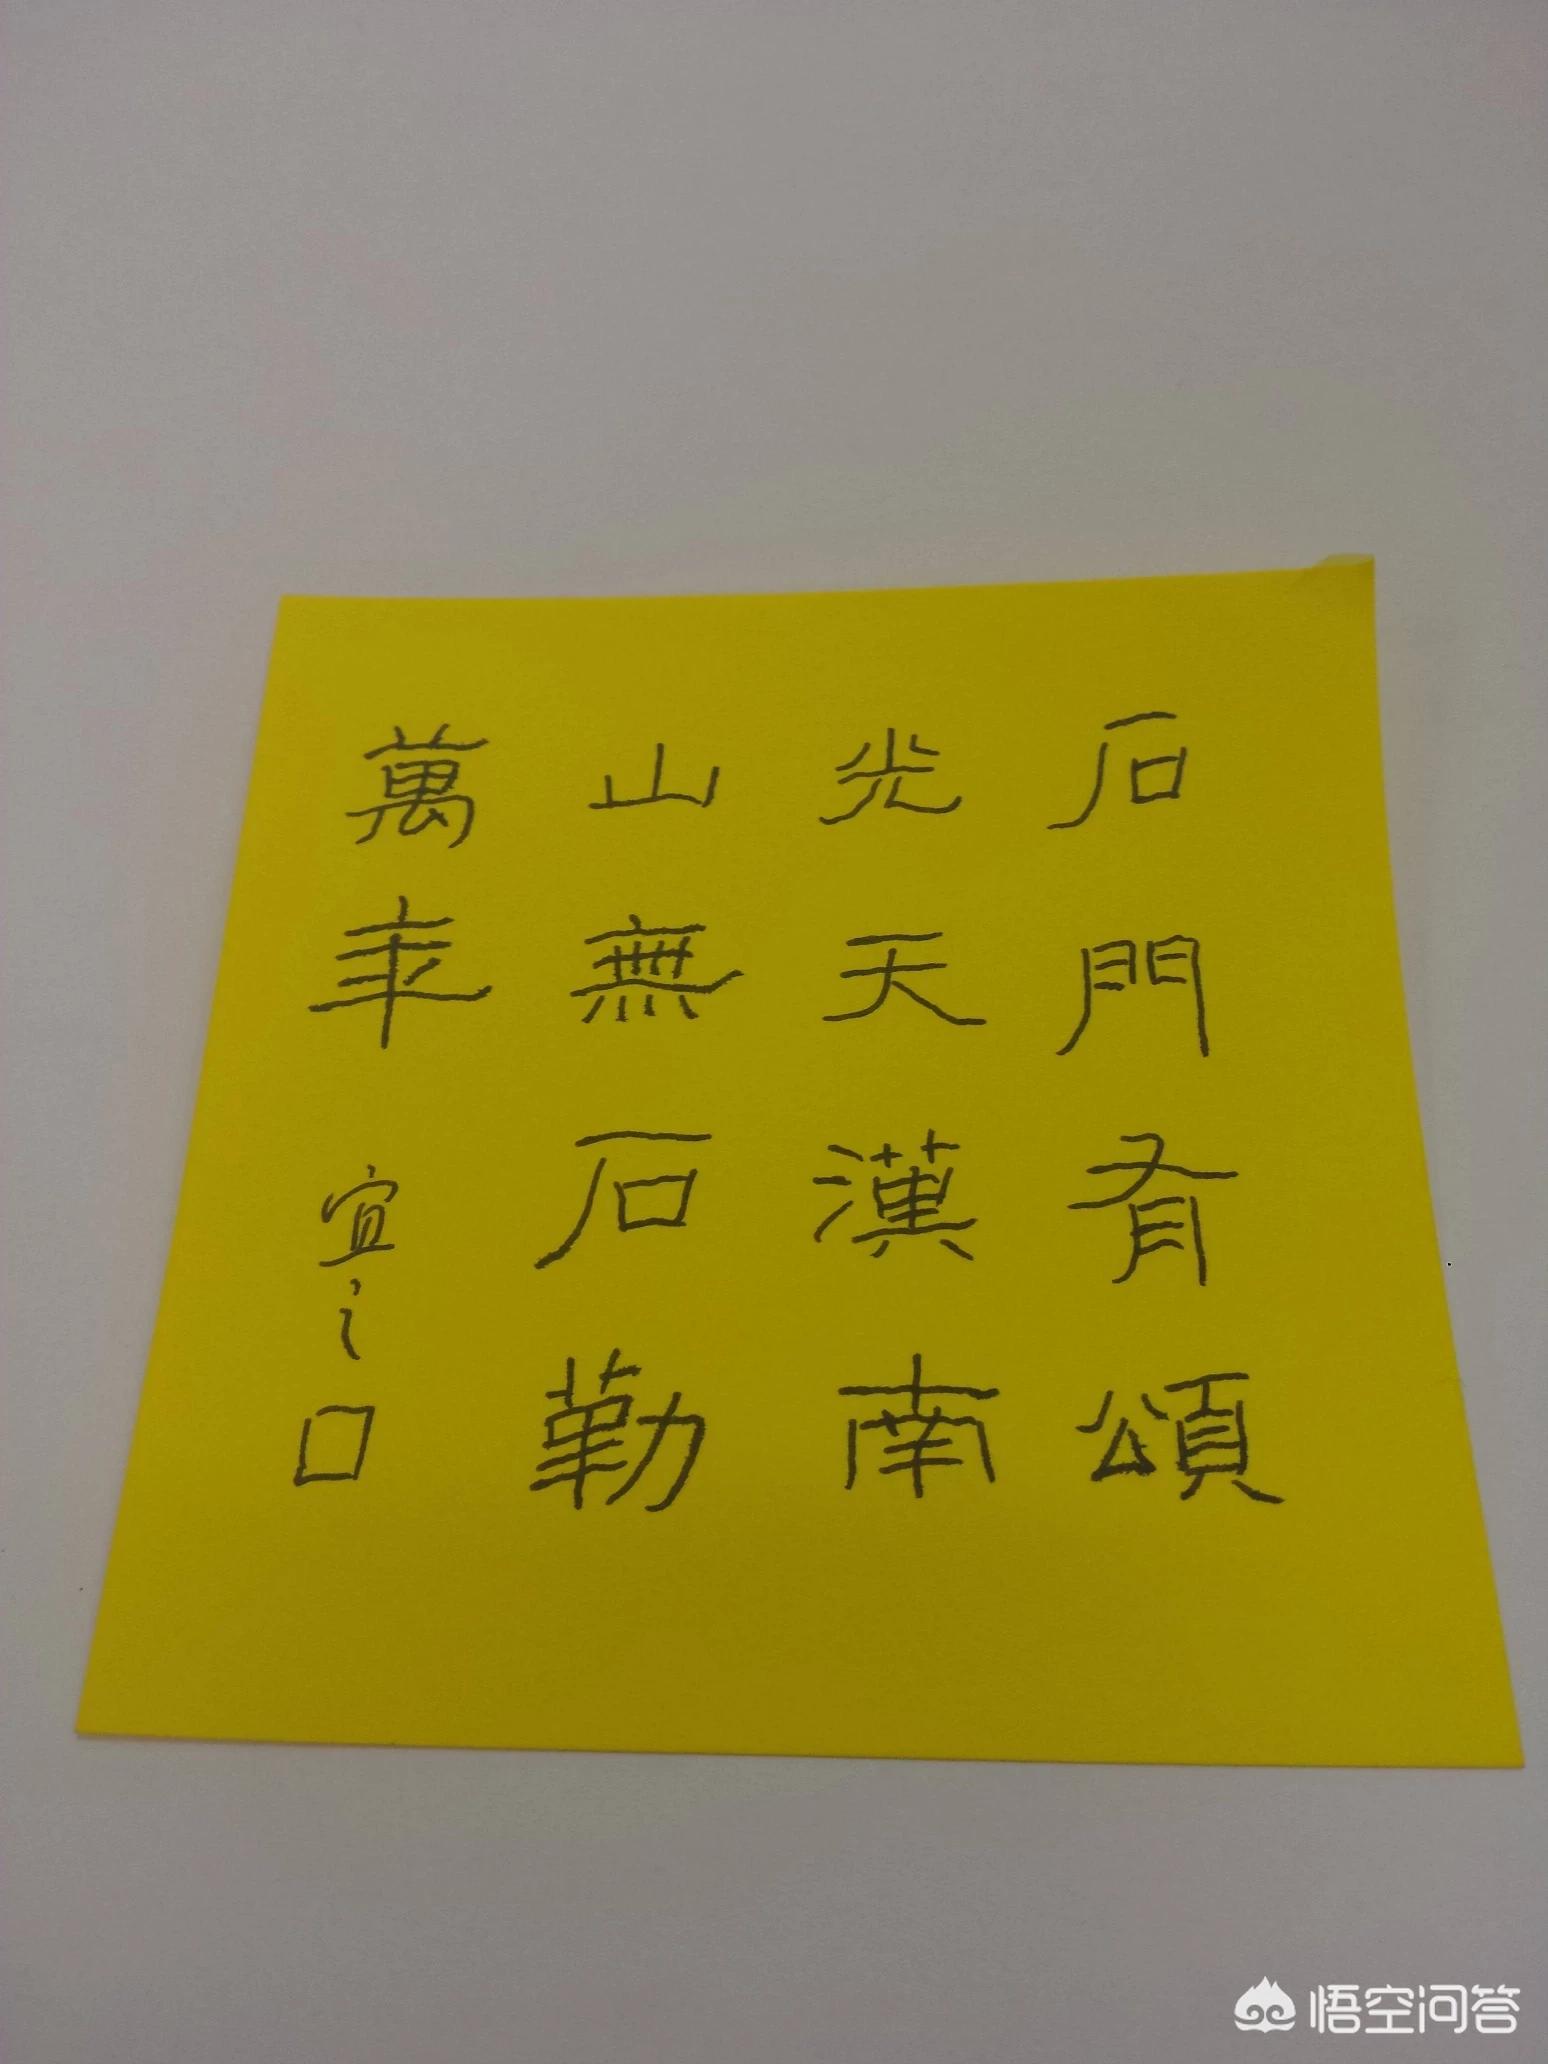 石門有頌
光天漢南
山無石勒
萬年
宜之
悟空问答